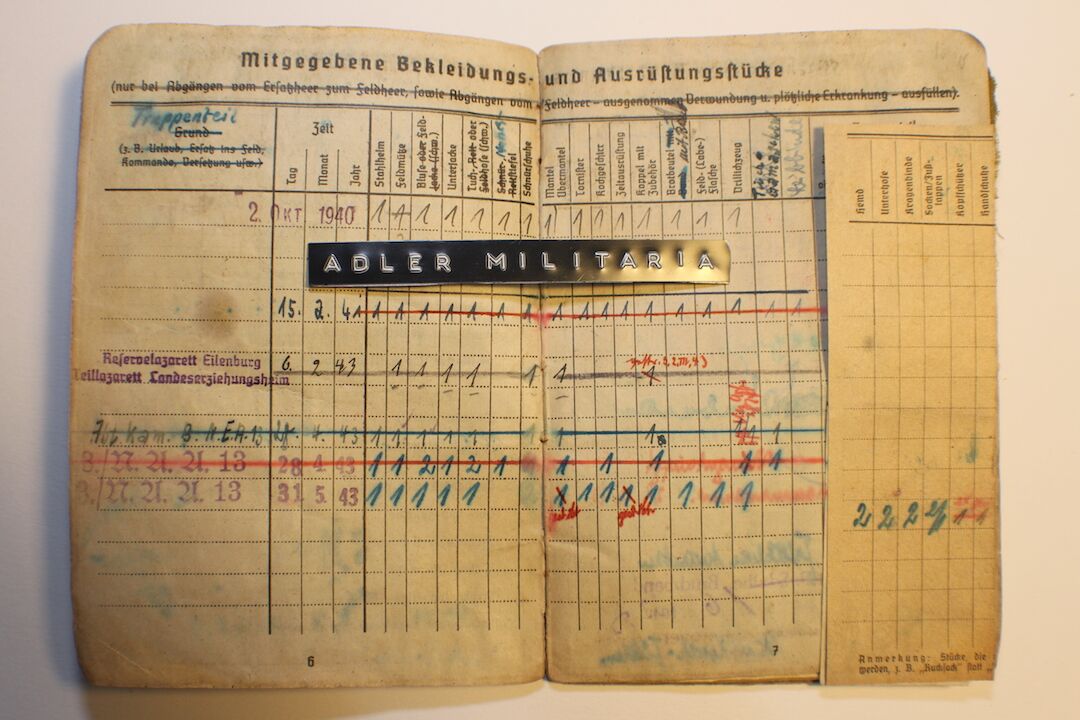 Mitgegebene Bekleidungs- und Ausrüstungsstücke
(nur bei Abgängen vom Ersatzheer zum Feldheer, sowie Abgängen vom Feldheer – ausgenommen Verwundung u. plötzliche Erkrankung – ausfüllen).
Truppenteil
Grund
(z. B. Urlaub, Ersatz ins Feld,
Kommando, Versetzung usw.)
Zeit
Tag
Monat
Jahr
Stahlhelm
Feldmütze
Bluse oder Feld-
jacke (schw.)
Unterjacke
Tuch-, Reit- oder
Feldhose (schw.)
Schnür-
Reitstiefel
Schnürschuhe
Mantel
Übermantel
Tornister
Kochgeschirr
Zeltausrüstung
Koppel mit
Zubehör
Brotbeutel mit
Feld- (Labe-)
Flasche
Drillichzeug
Hemd
Unterhose
Kragenbinde
Socken/Fuß-
lappen
Kopfschützer
Handschuhe
2. OKT 1940 1 1 1 1 1 1 1 1 1 1 1 1 1 1 1
ADLER MILITARIA
15. 2. 41 1 1 1 1 1 1 1 1 1 1 1 1 1 1 1
Reservelazarett Eilenburg
Teillazarett Landeserziehungsheim
6. 2 43 1 1 1 1 1 1 1
13 4. 43 1 1 1 1 1 1 1 1 1
3./N. A. A. 13 28 4. 43 1 1 2 1 2 1 1 1 1 1 1
3./N. A. A. 13 31 5. 43 1 1 1 1 1 1 1 1 1 1 1 1 1
2 2 2 2 1 1
Anmerkung: Stücke, die
werden, z. B. "Rucksack" statt
6
7